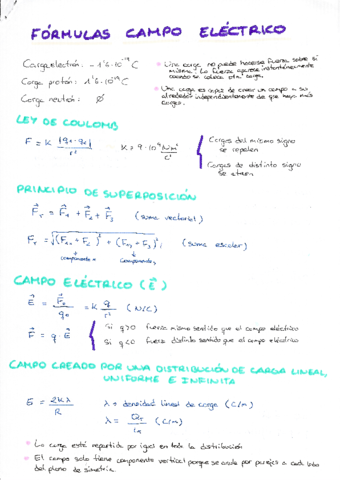 FÓRMULAS CAMPO ELÉCTRICO
Carga electrón: - 1'6·10⁻¹⁹ C
Carga protón: 1'6·10⁻¹⁹ C
Carga neutrón: Ø
• Una carga no puede hacerse fuerza sobre sí
misma. La fuerza aparece instantáneamente
cuando se coloca otra carga.
• Una carga es capaz de crear un campo a su
alrededor independientemente de que haya más
cargas.
LEY DE COULOMB
F = K |q₁·q₂| / r²
K = 9·10⁹ N·m² / C²
Cargas del mismo signo
se repelen
Cargas de distinto signo
se atraen
PRINCIPIO DE SUPERPOSICIÓN
F⃗ₜ = F⃗₁ + F⃗₂ + F⃗₃ (suma vectorial)
(suma escalar)
CAMPO ELÉCTRICO (E⃗)
= K q / r² (N/C)
F⃗ = q · E⃗
Si q>0 fuerza mismo sentido que el campo eléctrico
Si q<0 fuerza distinto sentido que el campo eléctrico
CAMPO CREADO POR UNA DISTRIBUCIÓN DE CARGA LINEAL,
UNIFORME E INFINITA
E = 2Kλ / R
λ = densidad lineal de carga (C/m)
(C/m)
• La carga está repartida por igual en toda la distribución
• El campo solo tiene componente vertical porque se anula por parejas a cada lado
del plano de simetría.